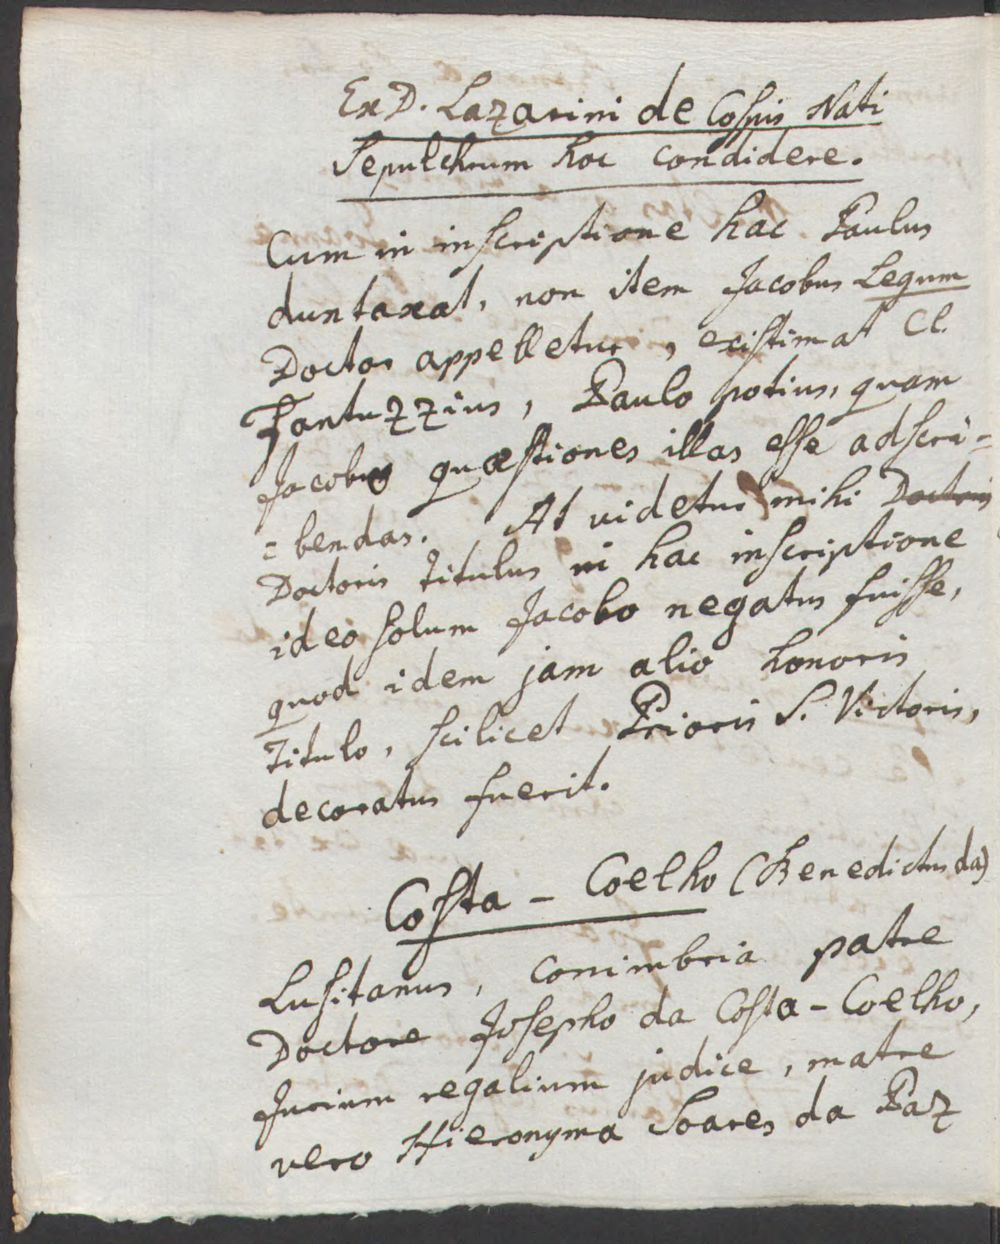 Ex D. Lazarini de Cospis Nati
Sepulchrum hoc condidere.
Cum in inscriptione hac Paulus
duntaxat, non item Jacobus Legum
Doctor appelletur, existimat Cl.
Fantuzzius, Paulo potius, quam
Jacobo quæstiones illas esse adscri=
=bendas. At videtur mihi Doctoris
Doctoris Titulus in hac inscriptione
ideo solum Jacobo negatus fuisse,
quod idem jam alio honoris
Titulo, scilicet Prioris S. Victoris,
decoratus fuerit.
Costa - Coelho (Benedictus da)
Lusitanus, Conimbria patre
Doctore Josepho da Costa - Coelho,
Jurium regalium judice, matre
vero Hieronyma Soares da Paz